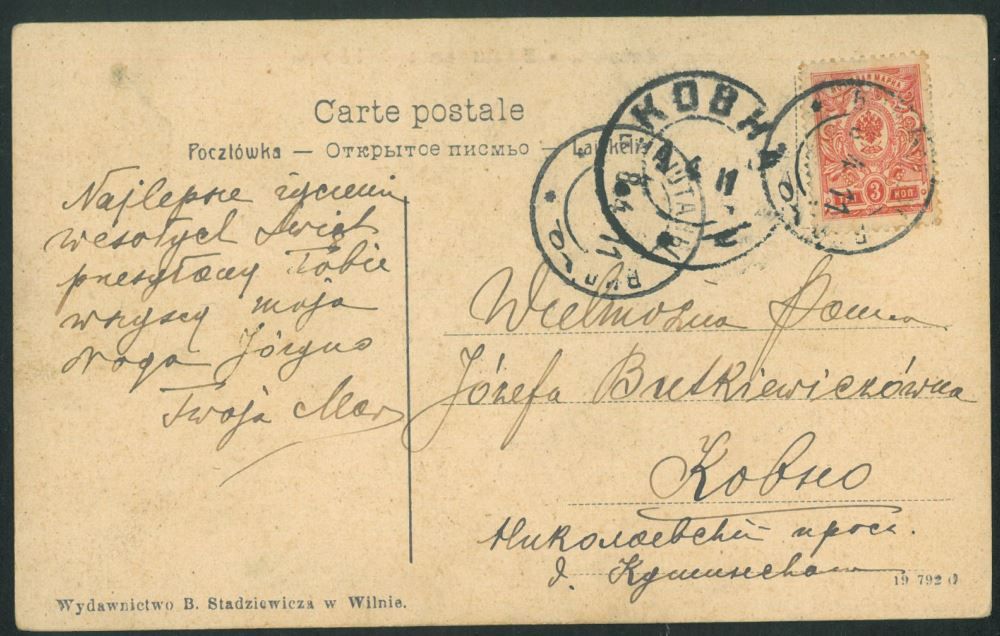 Carte postale
Pocztówka — Открытое письмо — Laiškelis
КОВНА
3 КОП
Najlepsze życzenia
wesołych Świąt
przesyłamy Tobie
wszyscy moja
Droga Józyno
Twoja
Wielmożna Panna
Józefa Butkiewiczówna
Ковно
Николаевский просп.
д.
Wydawnictwo B. Stadziewicza w Wilnie.
19 792